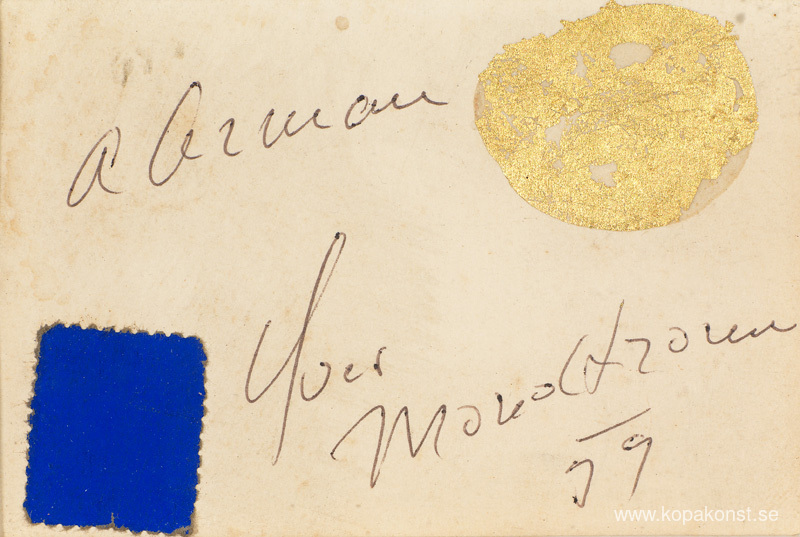 a Arman
Yves
Monochrome
59
www.kopakonst.se